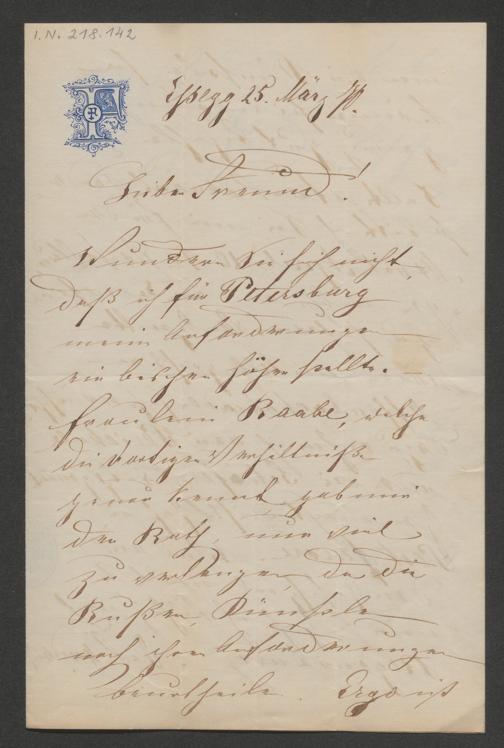 I.N. 218.142
Essegg 25. März 70.
Lieber Freund!
Wundern Sie sich nicht
daß ich für Petersburg
meine Anforderungen
ein bischen höher stellte.
Fräulein Raabe, welche
die dortigen Verhältniße
genau kennt, gab mir
den Rath, nur viel
zu verlangen, da die
Rußen, Künstler
nach ihren Anforderungen
beurtheilen. Ergo ist